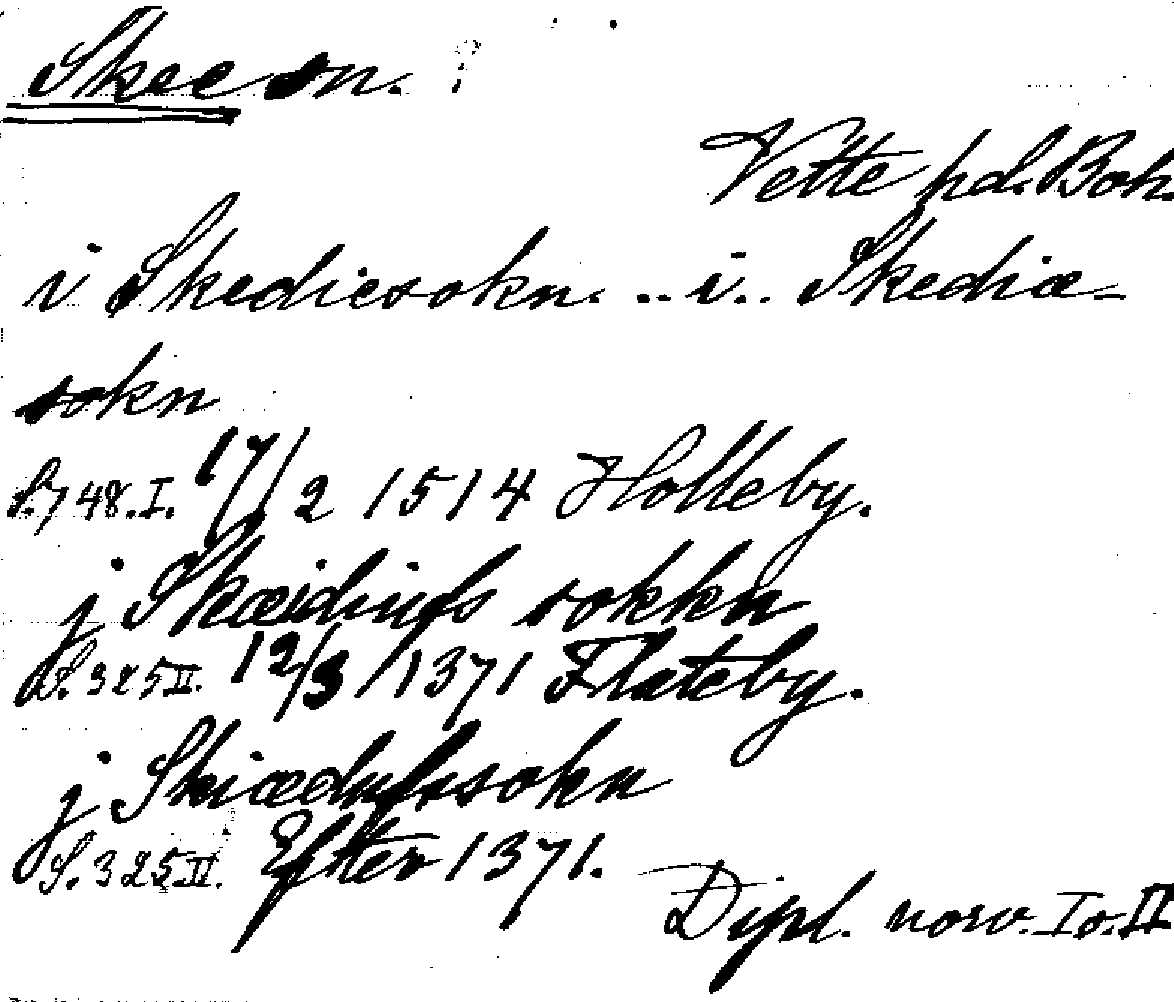 Skee sn.
Vette hd. Boh.
i Skediesokn. .. i .. Skediæ-
sokn
S. 748. I. 17/2 1514 Holleby.
j Skæidiufs sokkn
S. 325 II. 12/3 1371 Flateby.
j Skiædiufssokn
S. 325 II. Efter 1371.
Dipl. norv. I o. II